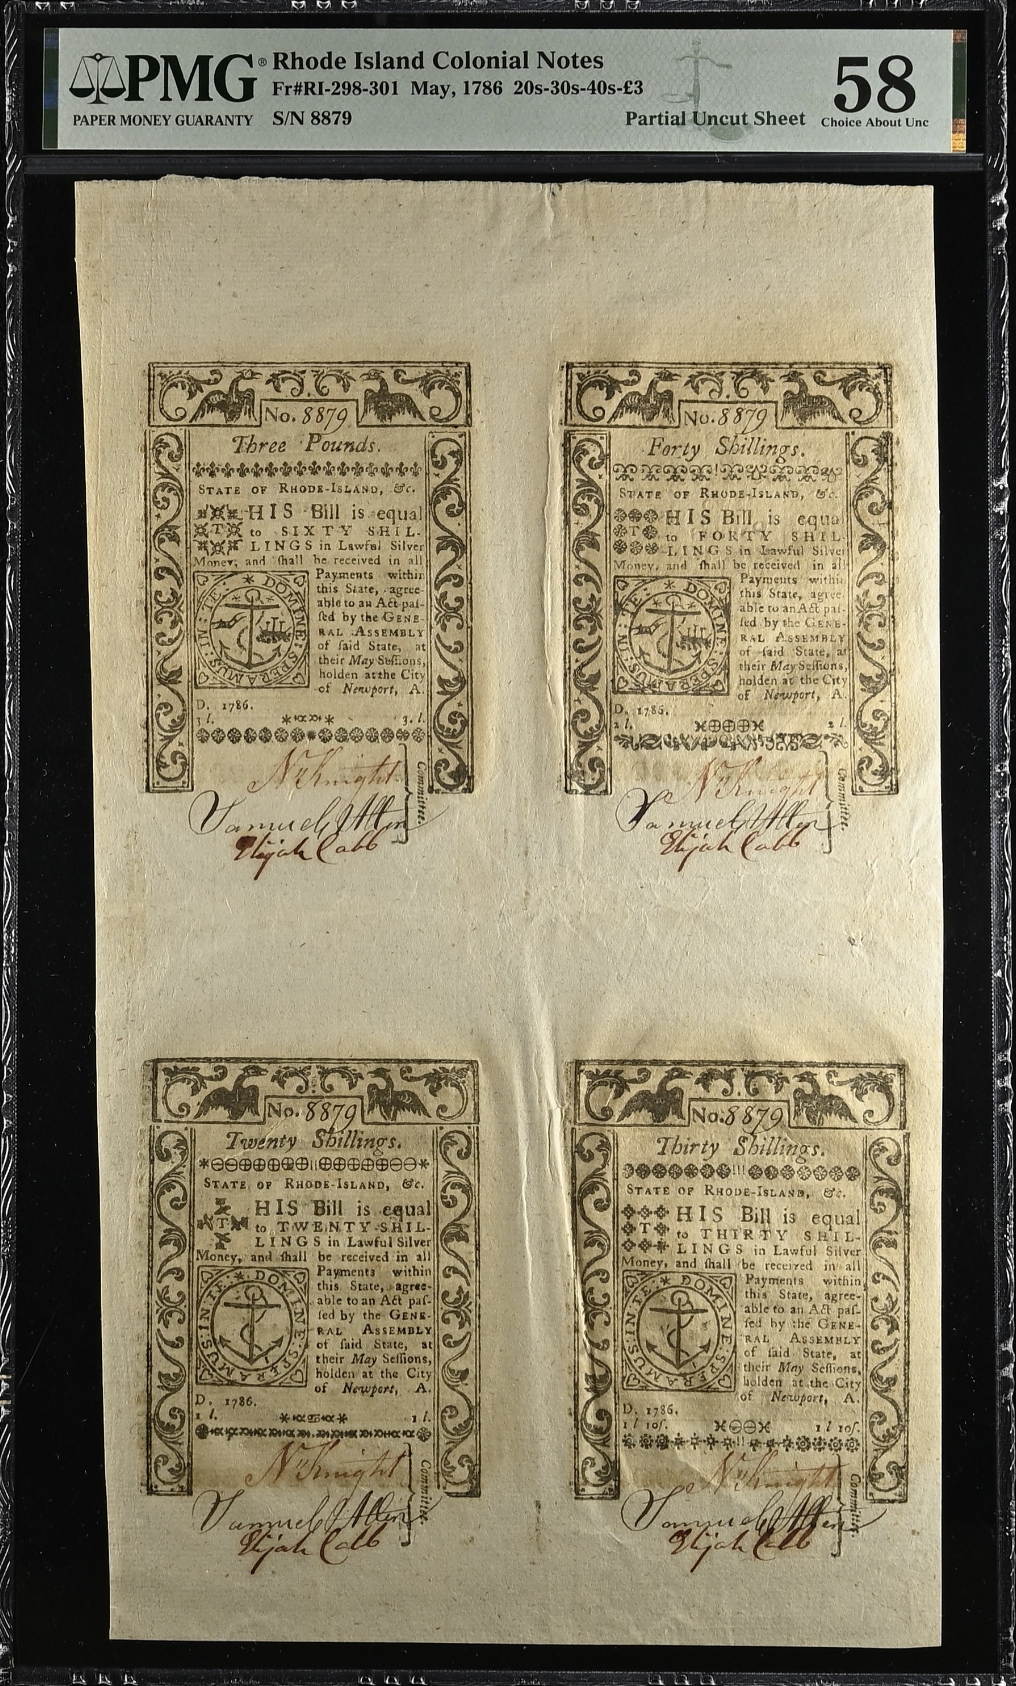 PMG® Rhode Island Colonial Notes
Fr#RI-298-301 May, 1786 20s-30s-40s-£3
PAPER MONEY GUARANTY S/N 8879
Partial Uncut Sheet
58
Choice About Unc
No. 8879
Three Pounds.
STATE OF RHODE-ISLAND, &c.
THIS Bill is equal
to SIXTY SHIL-
LINGS in Lawful Silver
Money, and shall be received in all
Payments within
this State, agree-
able to an Act paſ-
ſed by the GENE-
RAL ASSEMBLY
of ſaid State, at
their May Seſſions,
holden at the City
of Newport, A.
D. 1786.
IN TE DOMINE SPERAMUS
3 l. 3 l.
Committee.
N Knight
Samuel Allen
Elijah Cobb
No. 8879
Forty Shillings.
STATE OF RHODE-ISLAND, &c.
THIS Bill is equal
to FORTY SHIL-
LINGS in Lawful Silver
Money, and ſhall be received in all
Payments within
this State, agree-
able to an Act paſ-
ſed by the GENE-
RAL ASSEMBLY
of ſaid State, at
their May Seſſions,
holden at the City
of Newport, A.
D. 1786.
IN TE DOMINE SPERAMUS
2 l. 2 l.
Committee.
N Knight
Samuel Allen
Elijah Cobb
No. 8879
Twenty Shillings.
STATE OF RHODE-ISLAND, &c.
THIS Bill is equal
to TWENTY SHIL-
LINGS in Lawful Silver
Money, and ſhall be received in all
Payments within
this State, agree-
able to an Act paſ-
ſed by the GENE-
RAL ASSEMBLY
of ſaid State, at
their May Seſſions,
holden at the City
of Newport, A.
D. 1786.
IN TE DOMINE SPERAMUS
1 l. 1 l.
Committee.
N Knight
Samuel Allen
Elijah Cobb
No. 8879
Thirty Shillings.
STATE OF RHODE-ISLAND, &c.
THIS Bill is equal
to THIRTY SHIL-
LINGS in Lawful Silver
Money, and ſhall be received in all
Payments within
this State, agree-
able to an Act paſ-
ſed by the GENE-
RAL ASSEMBLY
of ſaid State, at
their May Seſſions,
holden at the City
of Newport, A.
D. 1786.
IN TE DOMINE SPERAMUS
1 l 10ſ. 1 l 10ſ.
Committee.
N Knight
Samuel Allen
Elijah Cobb